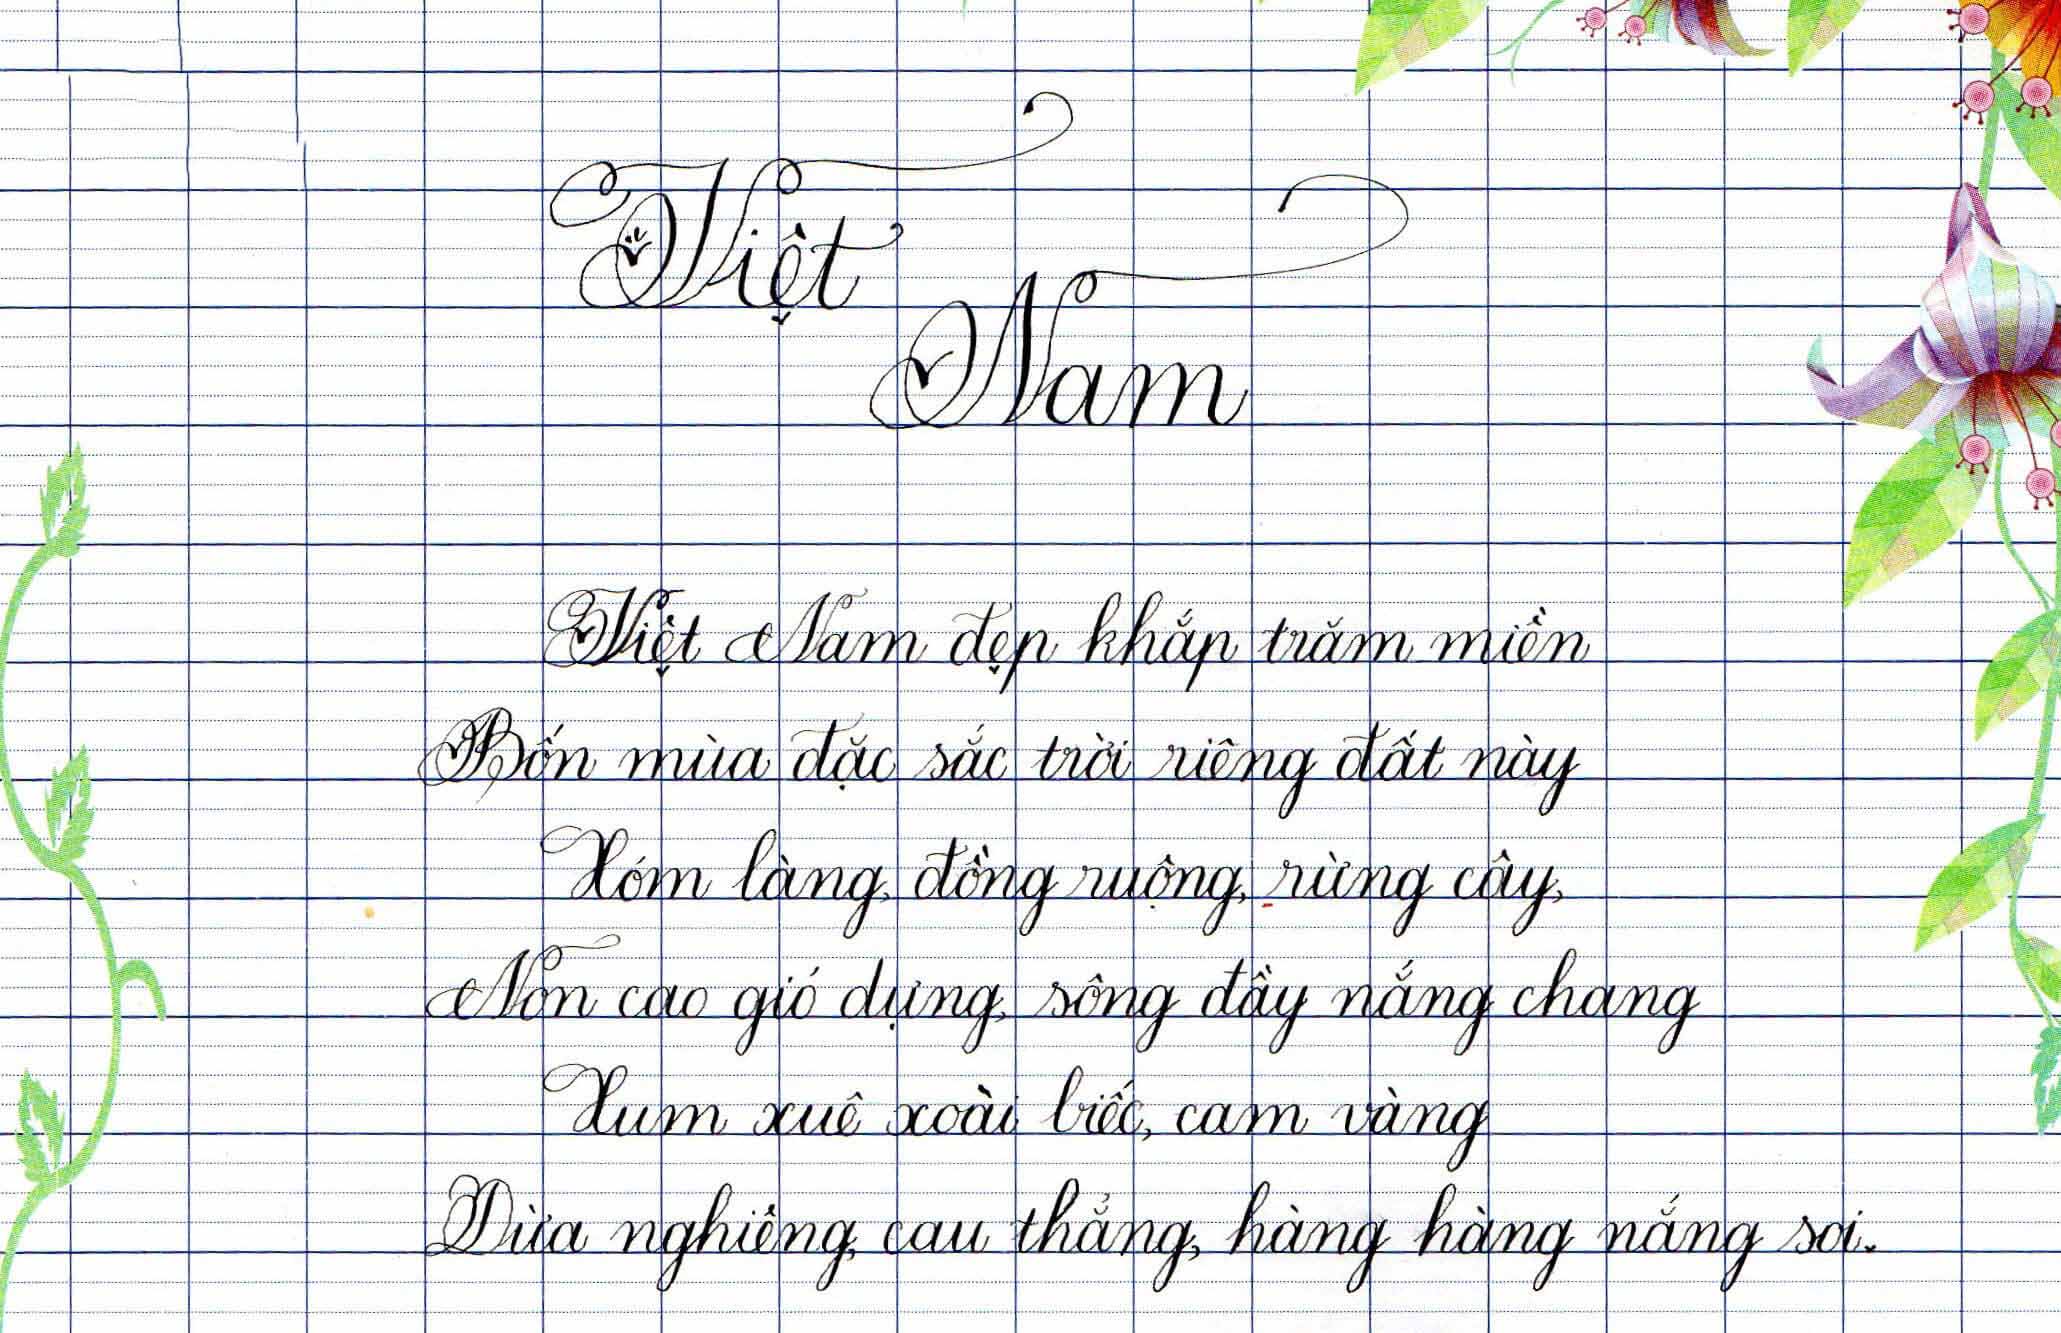 Việt
Nam
Việt Nam đẹp khắp trăm miền
Bốn mùa đặc sắc trời riêng đất này
Xóm làng, đồng ruộng, rừng cây,
Non cao gió dựng, sông đầy nắng chang
Xum xuê xoài biếc, cam vàng
Dừa nghiêng, cau thẳng, hàng hàng nắng soi.